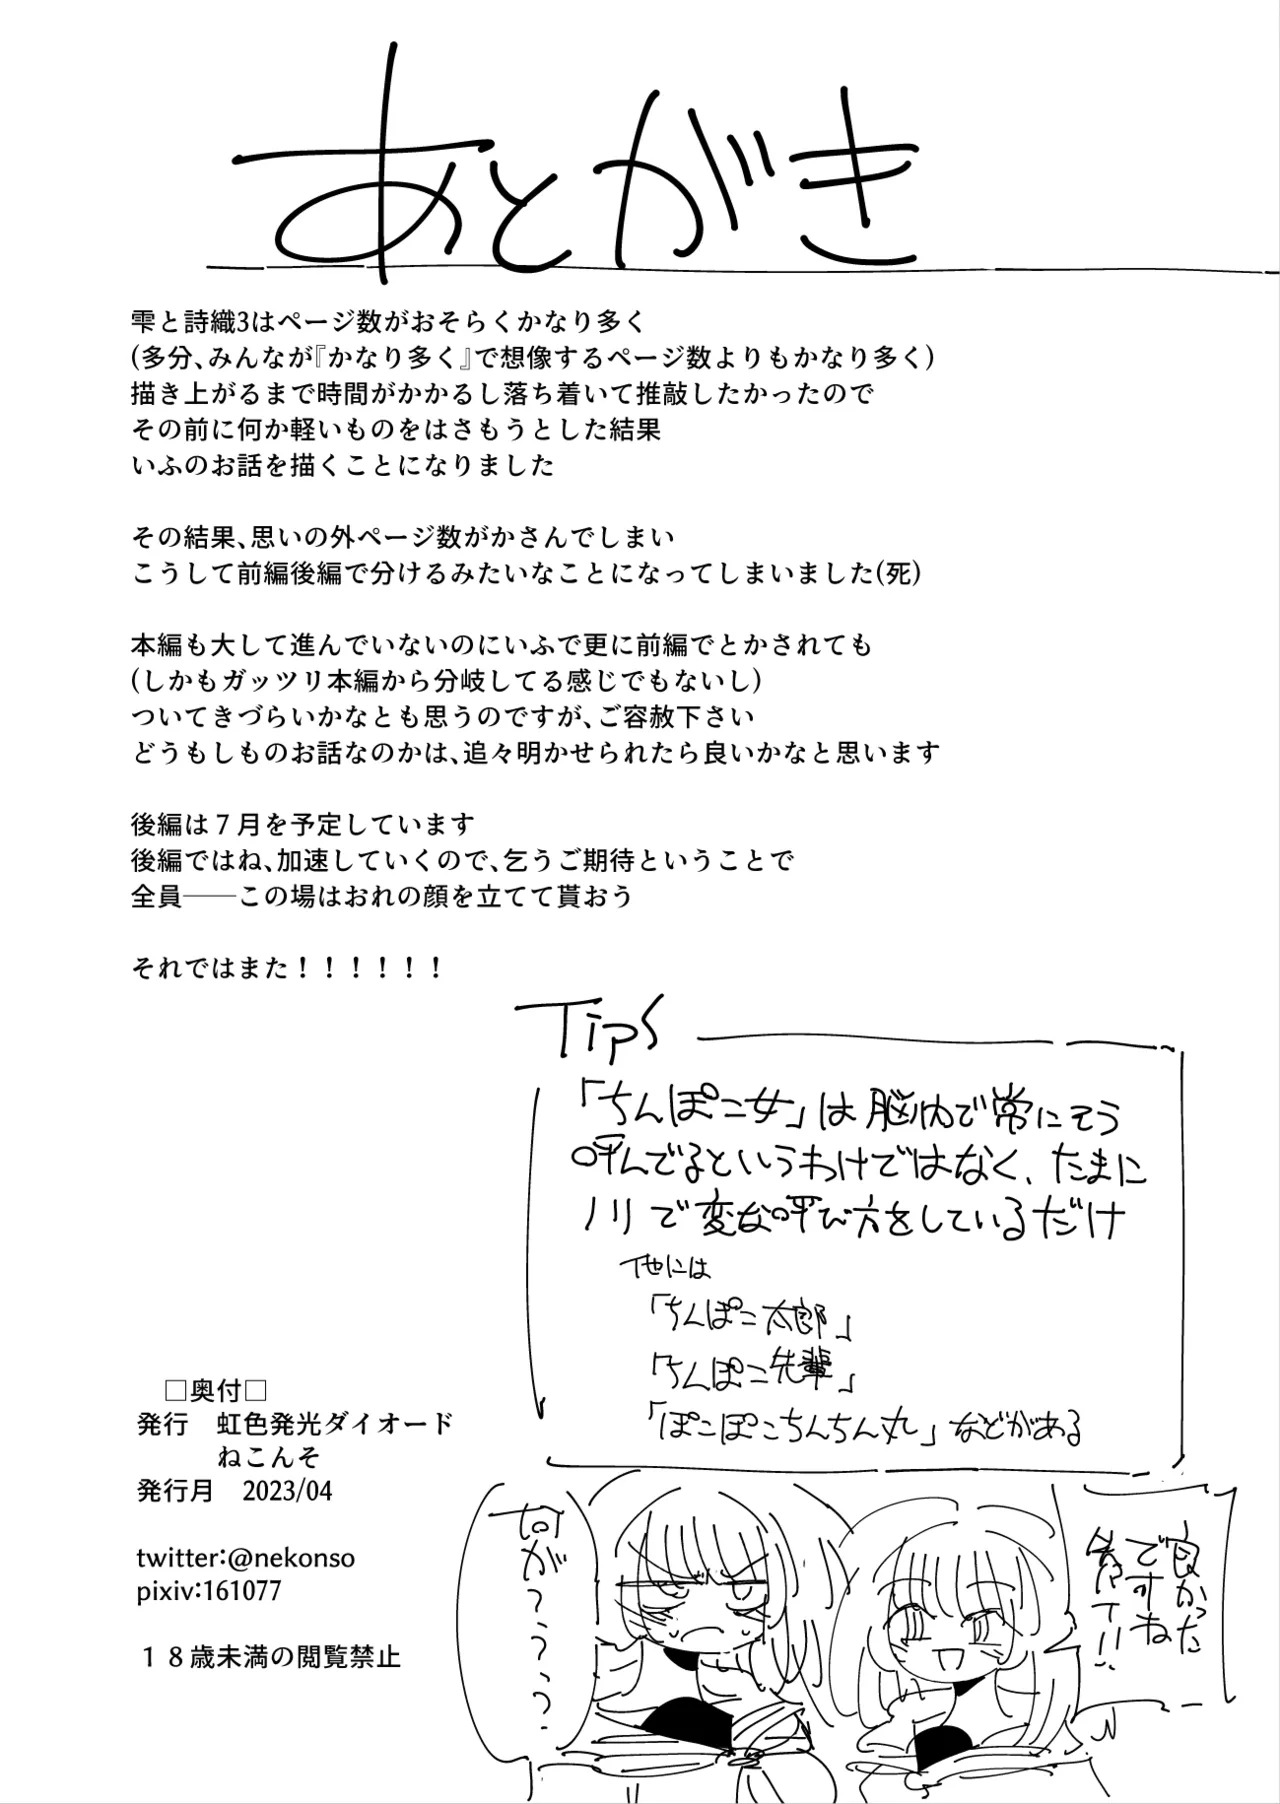 あとがき
雫と詩織3はページ数がおそらくかなり多く
(多分、みんなが『かなり多く』で想像するページ数よりもかなり多く)
描き上がるまで時間がかかるし落ち着いて推敲したかったので
その前に何か軽いものをはさもうとした結果
いふのお話を描くことになりました
その結果、思いの外ページ数がかさんでしまい
こうして前編後編で分けるみたいなことになってしまいました(死)
本編も大して進んでいないのにいふで更に前編でとかされても
(しかもガッツリ本編から分岐してる感じでもないし)
ついてきづらいかなとも思うのですが、ご容赦下さい
どうもしものお話なのかは、追々明かせられたら良いかなと思います
後編は７月を予定しています
後編ではね、加速していくので、乞うご期待ということで
全員──この場はおれの顔を立てて貰おう
それではまた！！！！！！
Tips
「ちんぽこ女」は脳内で常にそう
呼んでるというわけではなく、たまに
ノリで変な呼び方をしているだけ
他には
「ちんぽこ太郎」
「ちんぽこ先輩」
「ぽこぽこちんちん丸」などがある
□奥付□
発行　虹色発光ダイオード
ねこんそ
発行月　2023/04
twitter:@nekonso
pixiv:161077
１８歳未満の閲覧禁止
良かった
ですね
何が？